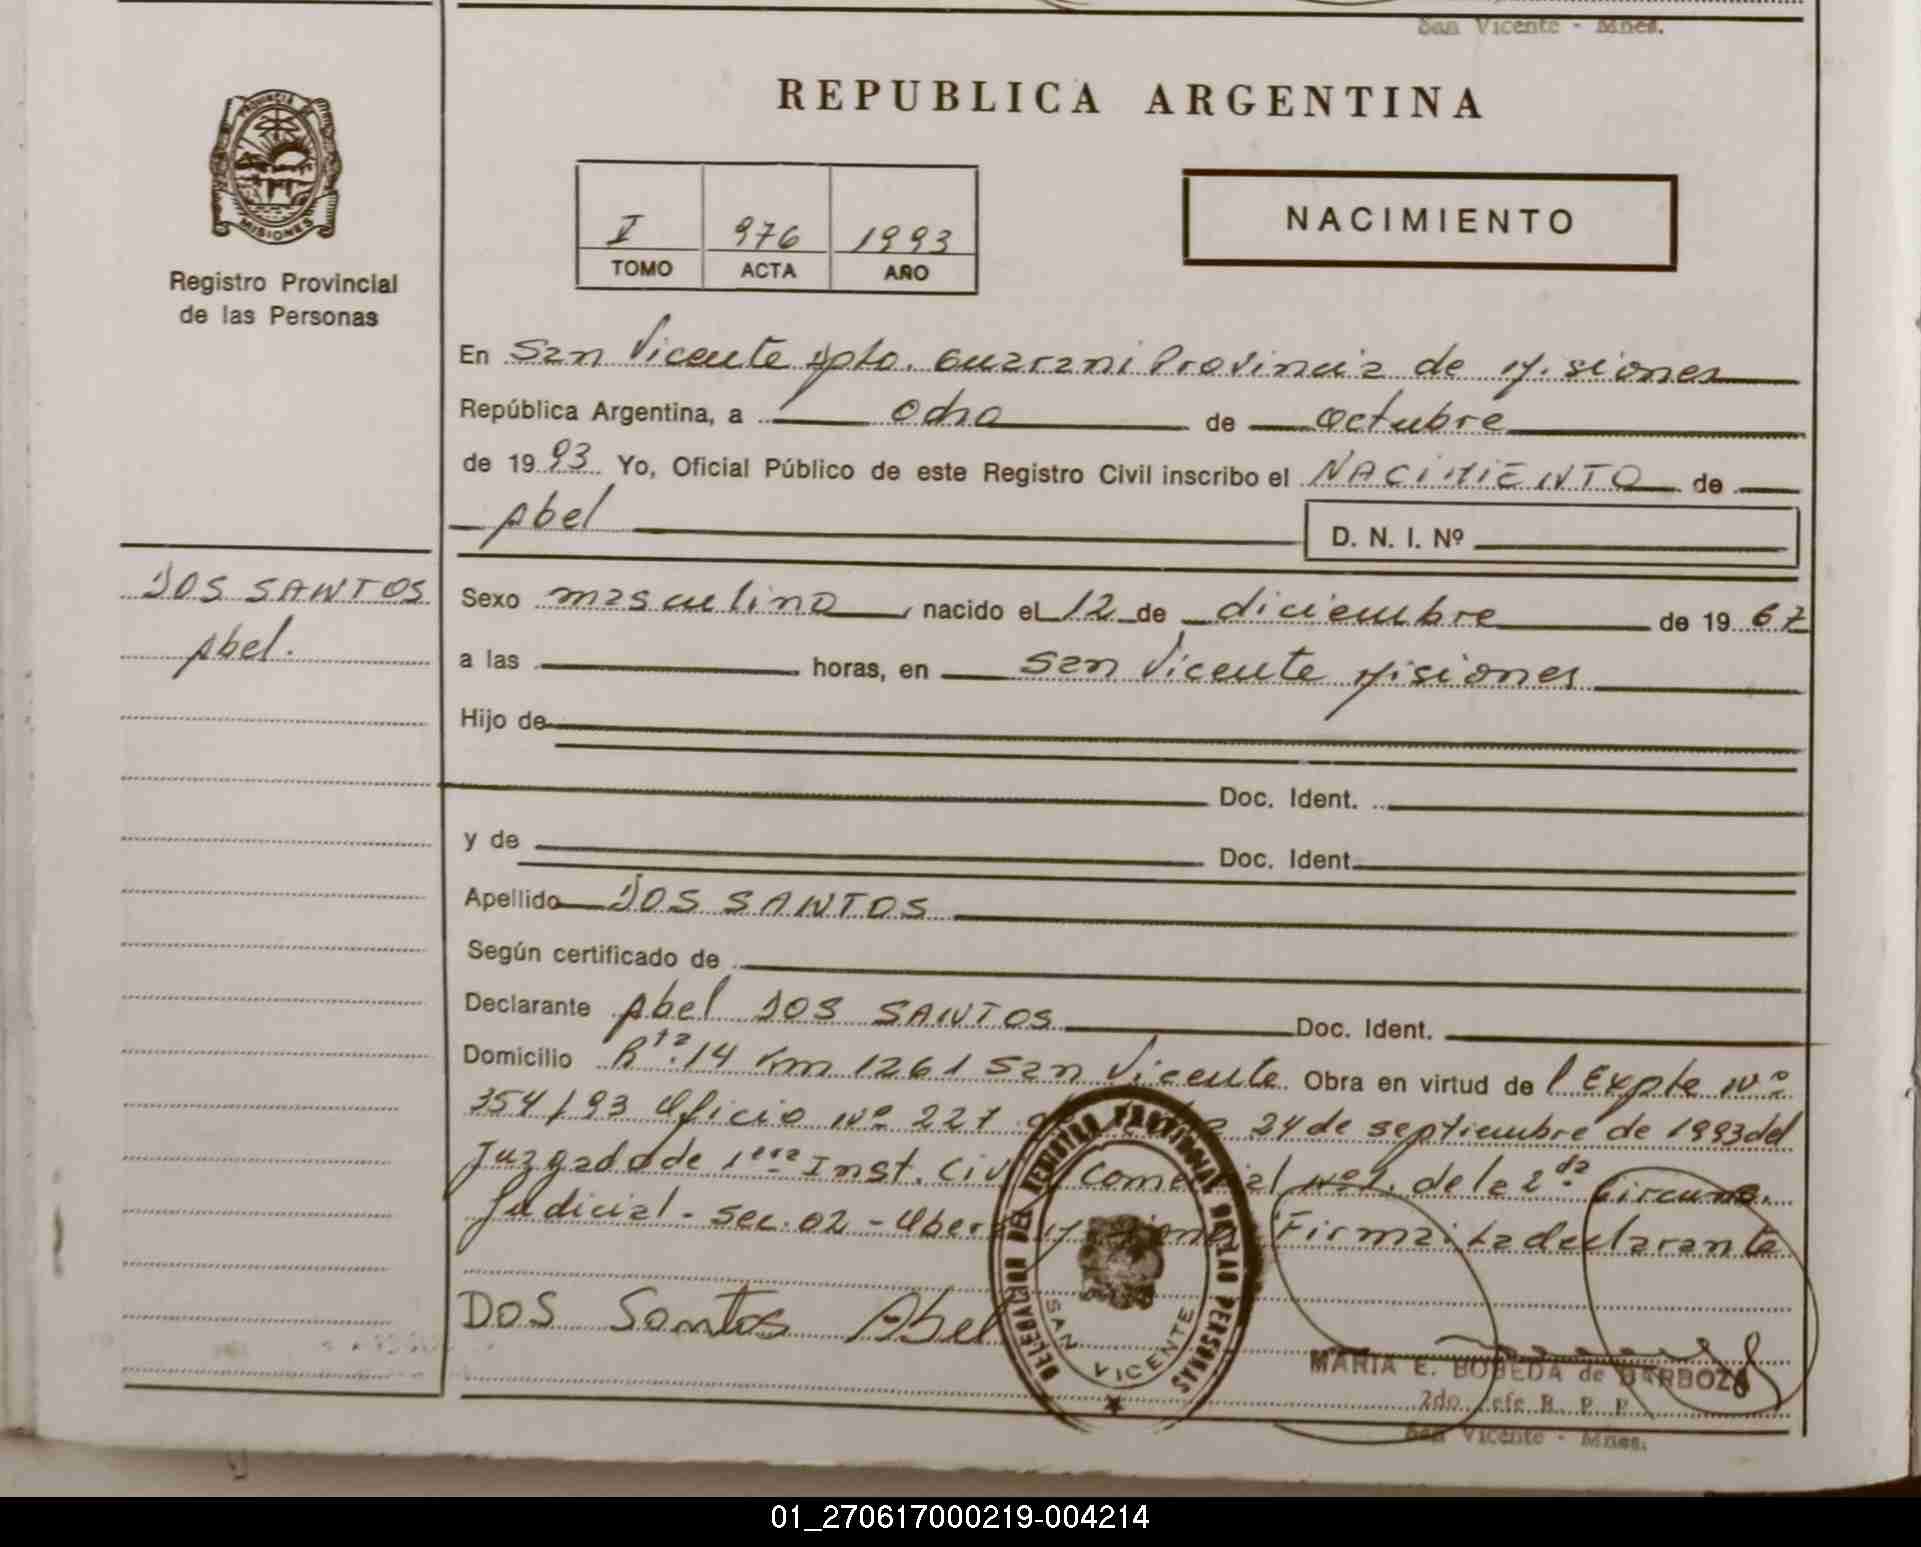 San Vicente - Mnes.
REPUBLICA ARGENTINA
PROVINCIA DE
MISIONES
Registro Provincial
de las Personas
I 976 1993
TOMO ACTA AÑO
NACIMIENTO
En San Vicente Dpto. Guarani Provincia de Misiones
República Argentina, a ocho de octubre
de 1993 Yo, Oficial Público de este Registro Civil inscribo el NACIMIENTO de
Abel D. N. I. Nº
DOS SANTOS
Abel.
Sexo masculino, nacido el 12 de diciembre de 1967
a las horas, en San Vicente Misiones
Hijo de
Doc. Ident.
y de Doc. Ident.
Apellido DOS SANTOS
Según certificado de
Declarante Abel DOS SANTOS Doc. Ident.
Domicilio Rta. 14 Km 1261 San Vicente. Obra en virtud del Expte Nº
354/93 Oficio Nº 227 24 de septiembre de 1993 del
Juzgado de 1era Inst. Civ Comercial Nº1. de la 2da Circuns.
Judicial - Sec. 02 - Obera Misiones Firma: La declarante
DOS Santos Abel
DELEGACION DEL REGISTRO PROVINCIAL DE LAS PERSONAS
SAN VICENTE
MARIA E. BOBEDA de BARBOZA
2do. Jefe R. P. P.
San Vicente - Mnes.
01_270617000219-004214